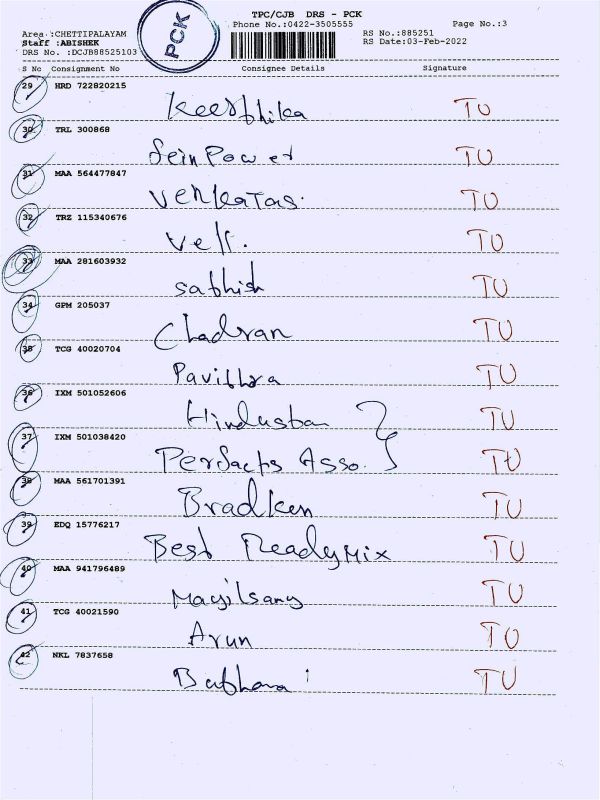 TPC/CJB DRS - PCK
Phone No.:0422-3505555
Page No.:3
PCK
Area :CHETTIPALAYAM
Staff :ABISHEK
DRS No. :DCJB88525103
RS No.:885251
RS Date:03-Feb-2022
S No Consignment No Consignee Details Signature
29 HRD 722820215
Keerthika TU
30 TRL 300868
SeinPower TU
31 MAA 564477847
Venkatas. TU
32 TRZ 115340676
Vell. TU
33 MAA 281603932
Sathish TU
34 GPM 205037
Chadran TU
35 TCG 40020704
Pavithra TU
36 IXM 501052606
Hindustan TU
37 IXM 501038420
Perfacts Asso. TU
38 MAA 561701391
Bradken TU
39 EDQ 15776217
Best Readymix TU
40 MAA 941796489
Mayilsamy TU
41 TCG 40021590
Arun TU
42 NKL 7837658
TU